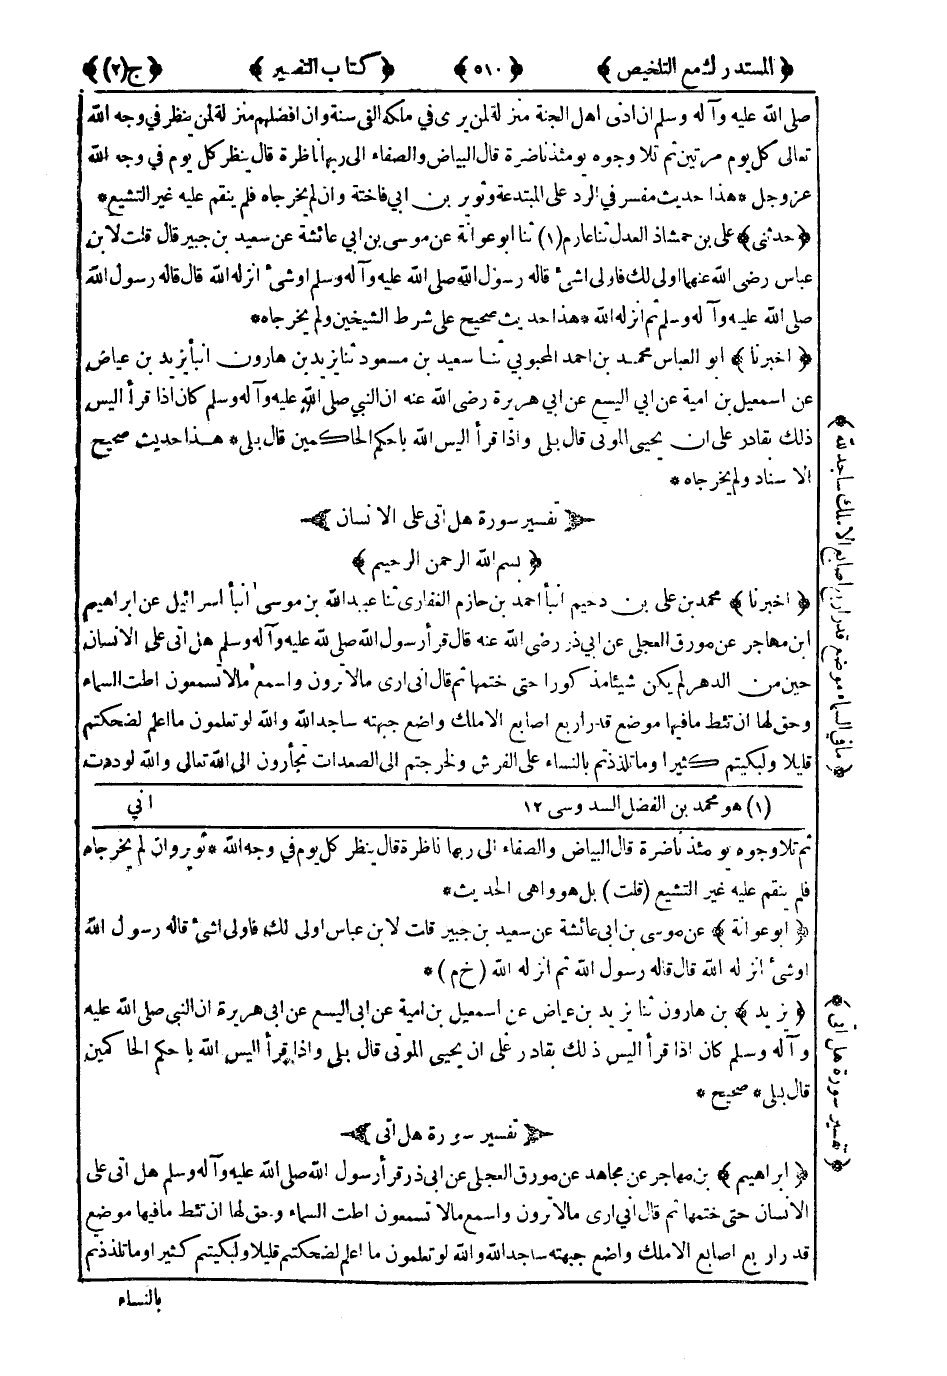 ﴿ المستدرك مع التلخيص ﴾ ﴿ ٥١٠ ﴾ ﴿ كتاب التفسير ﴾ ﴿ ج (٢) ﴾
صلى الله عليه وآله وسلم ان ادنى اهل الجنة منزلة لمن يرى في ملكه الفى سنة وان افضلهم منزلة لمن ينظر في وجه الله
تعالى كل يوم مرتين ثم تلا وجوه يومئذ ناضرة قال البياض والصفاء الى ربها ناظرة قال ينظر كل يوم في وجه الله
عز وجل * هذا حديث مفسر في الرد على المبتدعة وثوير بن ابي فاختة وان لم يخرجاه فلم ينقم عليه غير التشيع *
﴿ حدثنى ﴾ على بن حمشاذ العدل ثنا عارم (١) ثنا ابو عوانة عن موسى بن ابي عائشة عن سعيد بن جبير قال قلت لابن
عباس رضى الله عنهما اولى لك فاولى اشىء قاله رسول الله صلى الله عليه وآله وسلم اوشىء انزله الله قال قاله رسول الله
صلى الله عليه وآله وسلم ثم انزله الله * هذا حديث صحيح على شرط الشيخين ولم يخرجاه *
﴿ اخبرنا ﴾ ابو العباس محمد بن احمد المحبوبي ثنا سعيد بن مسعود ثنا يزيد بن هارون انبأ يزيد بن عياض
عن اسمعيل بن امية عن ابي اليسع عن ابي هريرة رضى الله عنه ان النبي صلى الله عليه وآله وسلم كان اذا قرأ اليس
ذلك بقادر على ان يحيى الموتى قال بلى واذا قرأ اليس الله باحكم الحاكمين قال بلى * هذا حديث صحيح
الاسناد ولم يخرجاه *
تفسير سورة هل اتى على الانسان
﴿ بسم الله الرحمن الرحيم ﴾
﴿ اخبرنا ﴾ محمد بن على بن دحيم انبأ احمد بن حازم الغفارى ثنا عبيد الله بن موسى انبأ اسرائيل عن ابراهيم
ابن مهاجر عن مورق العجلى عن ابي ذر رضى الله عنه قال قرأ رسول الله صلى لله عليه وآله وسلم هل اتى على الانسان
حين من الدهر لم يكن شيئا مذكورا حتى ختمها ثم قال انى ارى مالا ترون واسمع مالا تسمعون اطت السماء
وحق لها ان تئط مافيها موضع قدر اربع اصابع الاملك واضع جبهته ساجد الله والله لو تعلمون مااعلم لضحكتم
قليلا ولبكيتم كثيرا وما تلذذتم بالنساء على الفرش ولخرجتم الى الصعدات تجأرون الى الله تعالى والله لوددت
(١) هو محمد بن الفضل السدوسى ١٢ انى
ثم تلا وجوه يومئذ ناضرة قال البياض والصفاء الى ربها ناظرة قال ينظر كل يوم في وجه الله * ثوير وان لم يخرجاه
فلم ينقم عليه غير التشيع (قلت) بل هو واهى الحديث *
﴿ ابو عوانة ﴾ عن موسى بن ابى عائشة عن سعيد بن جبير قلت لابن عباس اولى لك فاولى اشىء قاله رسول الله
اوشىء انزله الله قال قاله رسول الله ثم انزله الله (خ م) *
﴿ يزيد ﴾ بن هارون ثنا يزيد بن عياض عن اسمعيل بن امية عن ابى اليسع عن ابى هريرة ان النبى صلى الله عليه
وآله وسلم كان اذا قرأ اليس ذلك بقادر على ان يحيى الموتى قال بلى واذا قرأ اليس الله باحكم الحاكمين
قال بلى * صحيح *
تفسير سورة هل اتى
﴿ ابراهيم ﴾ بن مهاجر عن مجاهد عن مورق العجلى عن ابى ذر قرأ رسول الله صلى الله عليه وآله وسلم هل اتى على
الانسان حتى ختمها ثم قال انى ارى مالا ترون واسمع مالا تسمعون اطت السماء وحق لها ان تئط مافيها موضع
قدر اربع اصابع الاملك واضع جبهته ساجد الله والله لو تعلمون ما اعلم لضحكتم قليلا ولبكيتم كثيرا وما تلذذتم
بالنساء
﴿ مافى السماء موضع قدر اربع اصابع الاملك ساجد لله ﴾
﴿ تفسير سورة هل اتى ﴾